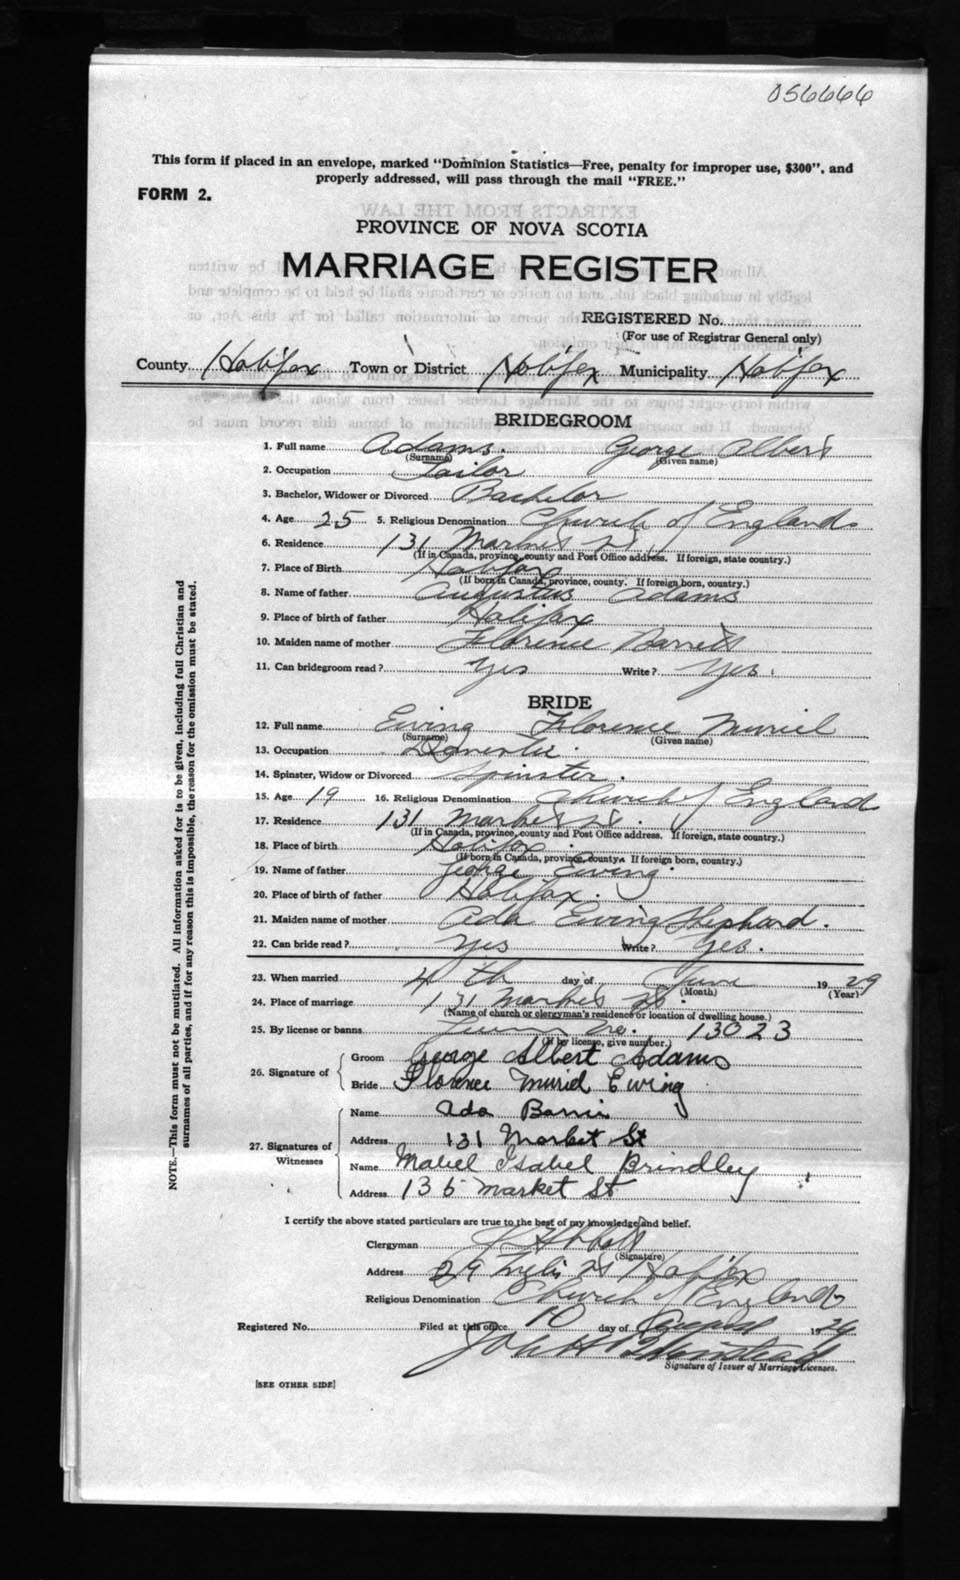 056666
This form if placed in an envelope, marked "Dominion Statistics—Free, penalty for improper use, $300", and
properly addressed, will pass through the mail "FREE."
FORM 2.
PROVINCE OF NOVA SCOTIA
MARRIAGE REGISTER
REGISTERED No.
(For use of Registrar General only)
County Halifax Town or District Halifax Municipality Halifax
BRIDEGROOM
1. Full name Adams. George Albert
(Surname) (Given name)
2. Occupation Tailor
3. Bachelor, Widower or Divorced Bachelor
4. Age 25 5. Religious Denomination Church of England
6. Residence 131 Market St.
(If in Canada, province, county and Post Office address. If foreign, state country.)
7. Place of Birth Halifax
(If born in Canada, province, county. If foreign born, country.)
8. Name of father Augustus Adams
9. Place of birth of father Halifax
10. Maiden name of mother Florence Barrett
11. Can bridegroom read? Yes Write? Yes
BRIDE
12. Full name Ewing Florence Muriel
(Surname) (Given name)
13. Occupation Domestic.
14. Spinster, Widow or Divorced Spinster.
15. Age 19 16. Religious Denomination Church of England
17. Residence 131 Market St.
(If in Canada, province, county and Post Office address. If foreign, state country.)
18. Place of birth Halifax.
(If born in Canada, province, county. If foreign born, country.)
19. Name of father George Ewing.
20. Place of birth of father Halifax.
21. Maiden name of mother Ada Ewing Shephard.
22. Can bride read? Yes Write? Yes.
23. When married 4th day of June 1929
(Month) (Year)
24. Place of marriage 131 Market St.
(Name of church or clergyman's residence or location of dwelling house.)
25. By license or banns No. 13023
(If by license, give number.)
26. Signature of
Groom George Albert Adams
Bride Florence Muriel Ewing
27. Signatures of Witnesses
Name Ada
Address 131 Market St
Name Mabel Isabel Brindley
Address 135 Market St
I certify the above stated particulars are true to the best of my knowledge and belief.
Clergyman
(Signature)
Address 29 St Halifax
Religious Denomination Church of England
Registered No. Filed at this office 10 day of August 1929
Signature of Issuer of Marriage Licenses.
[SEE OTHER SIDE]
NOTE.—This form must not be mutilated. All information asked for is to be given, including full Christian and
surnames of all parties, and if for any reason this is impossible, the reason for the omission must be stated.